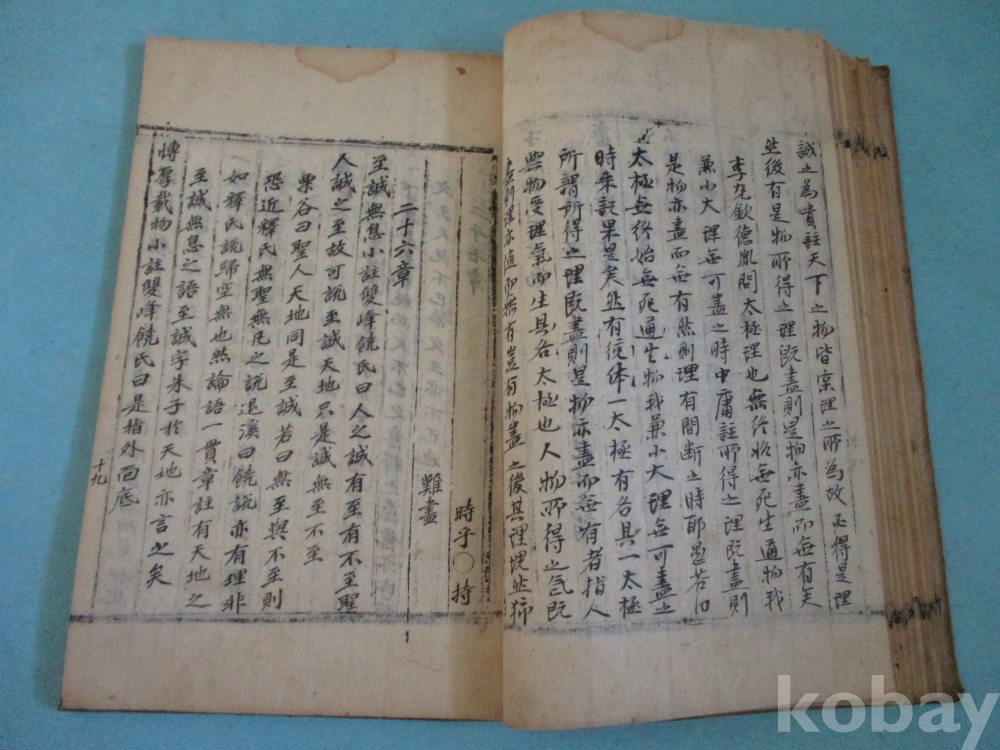 誠之爲貴註天下之物皆禀理之所爲故必得是理
然後有是物所得之理既盡則是物亦盡而無有矣
李君欽德胤問太極理也無終始無死生通物我
兼小大理無可盡之時中庸註所得之理既盡則
是物亦盡而無有然則理有間斷之時耶愚答曰
太極無終始無死通生物我兼小大理無可盡之
時來記果是矣然有統体一太極有各具一太極
與物受理氣而生具各太極也人物所得之氣既
所謂所得之理既盡則是物亦盡而無有者指人
盡則理亦隨而無有豈有物盡之後其理塊然猶
時乎〇持
難盡
二十六章
至誠無息小註雙峰饒氏曰人之誠有至有不至聖
人誠之至故可説至誠天地只是誠無至不至
栗谷曰聖人天地同是至誠若曰無至與不至則
恐近釋氏無聖無凡之説退溪曰饒説亦有理非
一如釋氏説歸空無也然論語一貫章註有天地之
至誠無息之語至誠字朱子於天地亦言之矣
博厚載物小註雙峰饒氏曰是指外面底
十九
kobay